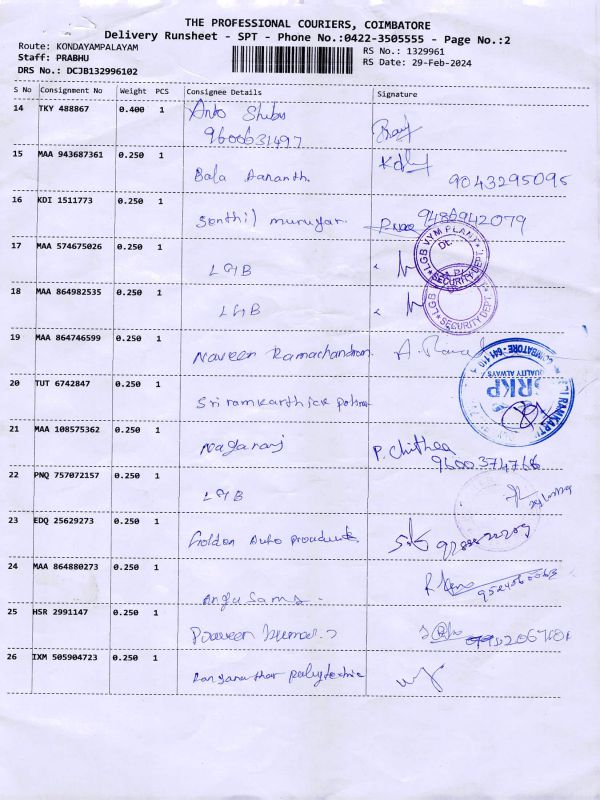 THE PROFESSIONAL COURIERS, COIMBATORE
Delivery Runsheet - SPT - Phone No.:0422-3505555 - Page No.:2
Route: KONDAYAMPALAYAM
Staff: PRABHU
DRS No.: DCJB132996102
RS No.: 1329961
RS Date: 29-Feb-2024
S No Consignment No Weight PCS Consignee Details Signature
14 TKY 488867 0.400 1 Anto Shibu
9600631497
15 MAA 943687361 0.250 1 Bala Aananth
9043295095
16 KDI 1511773 0.250 1 Senthil murugan 9488942079
17 MAA 574675026 0.250 1 LGB
LGB VYM PLANT
SECURITY DEPT
18 MAA 864982535 0.250 1 LGB
SECURITY DEPT
19 MAA 864746599 1 Naveen Ramachandran
COIMBATORE - 641 110
QUALITY ALWAYS
SRKP
20 TUT 6742847 0.250 1 Sri ramkarthick
21 MAA 108575362 0.250 1 Nagaraj P. Chithra
9600374766
22 PNQ 757072157 0.250 1 LGB
23 EDQ 25629273 0.250 1 Golden Auto
24 MAA 864880273 0.250 1
25 HSR 2991147 0.250 1 Praveen Kumar
26 IXM 505904723 0.250 1 Ranganathar Polytechnic